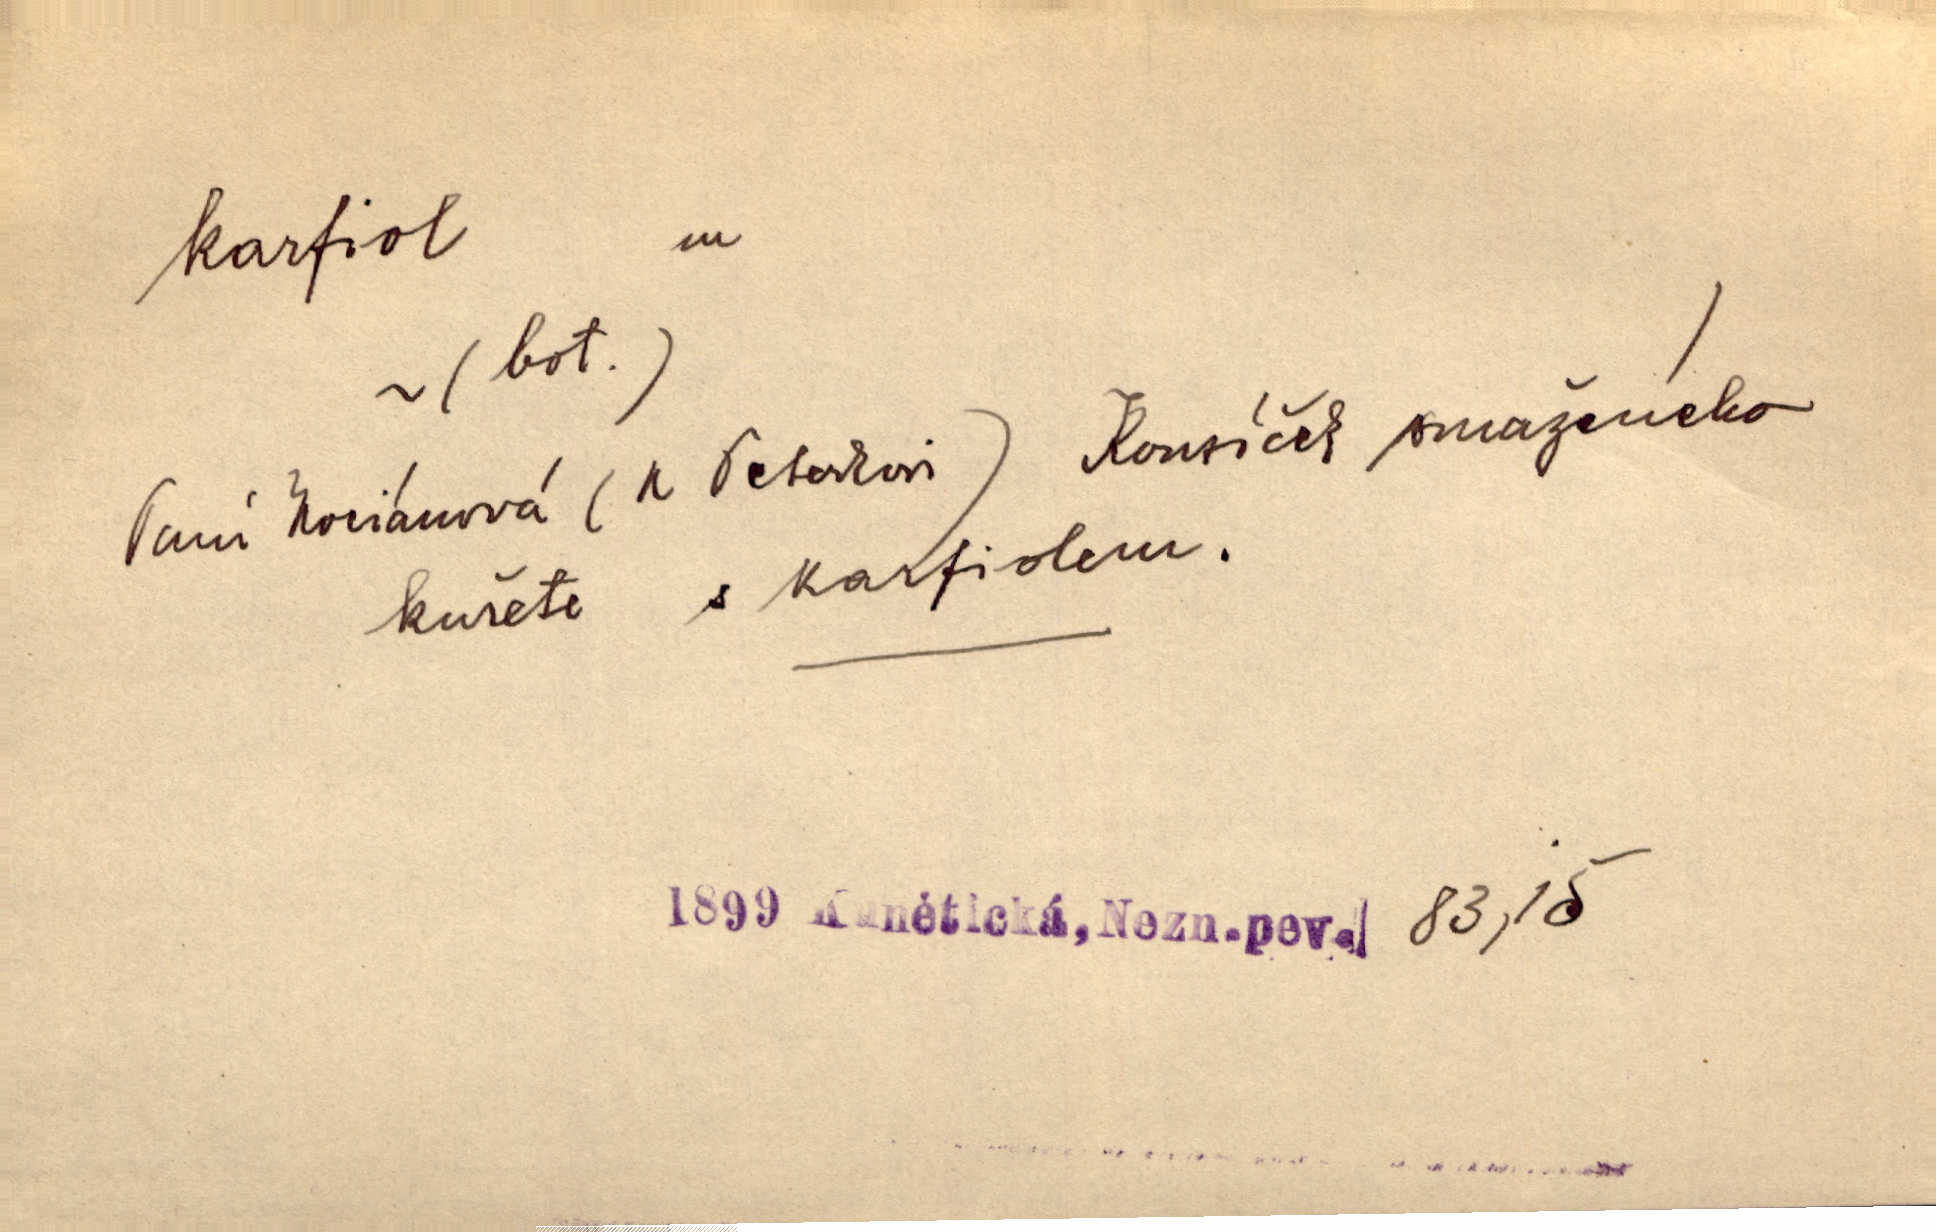 karfiol m
~ ( bot. )
Paní Kociánová ( k Peterkovi ) Kousíček smaženého
kuřete s karfiolem.
1899 Kunětická, Nezn. pev. 83, 15